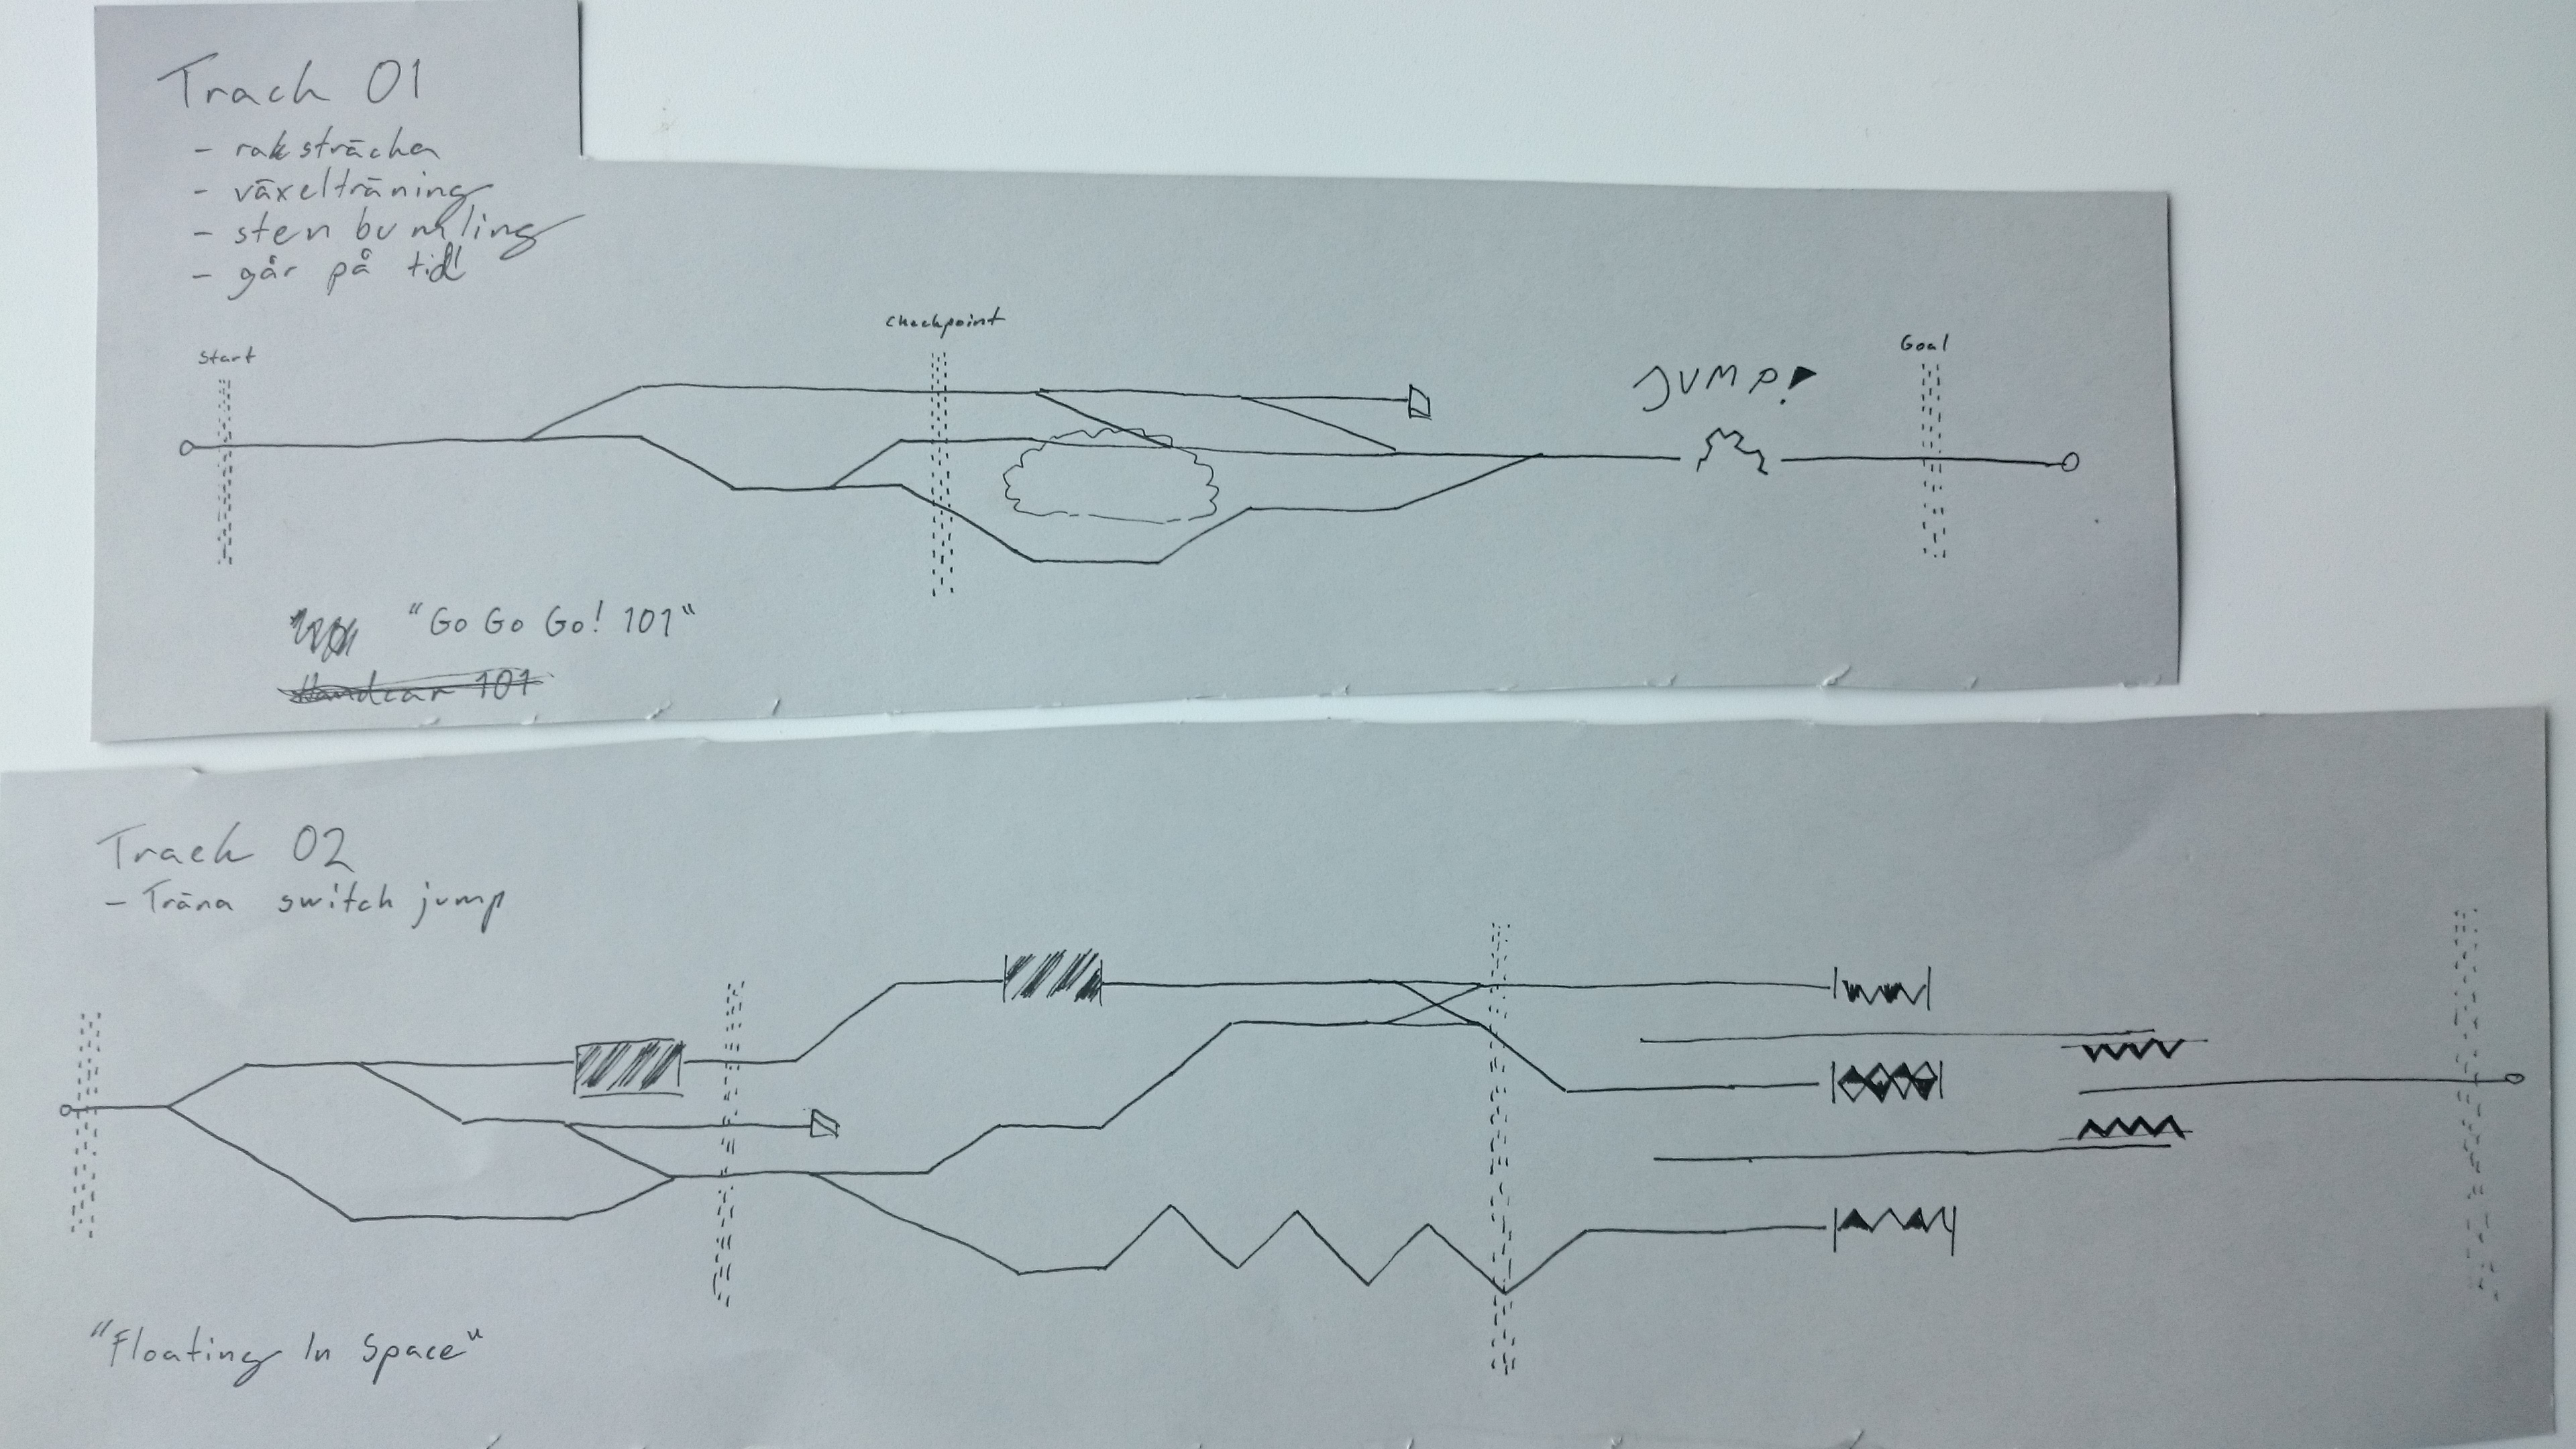 Track 01
- raksträcka
- växelträning
- sten bumling
- går på tid!
Start
Checkpoint
JUMP!
Goal
"Go Go Go! 101"
Handcar 101
Track 02
- Träna switch jump
"Floating In Space"